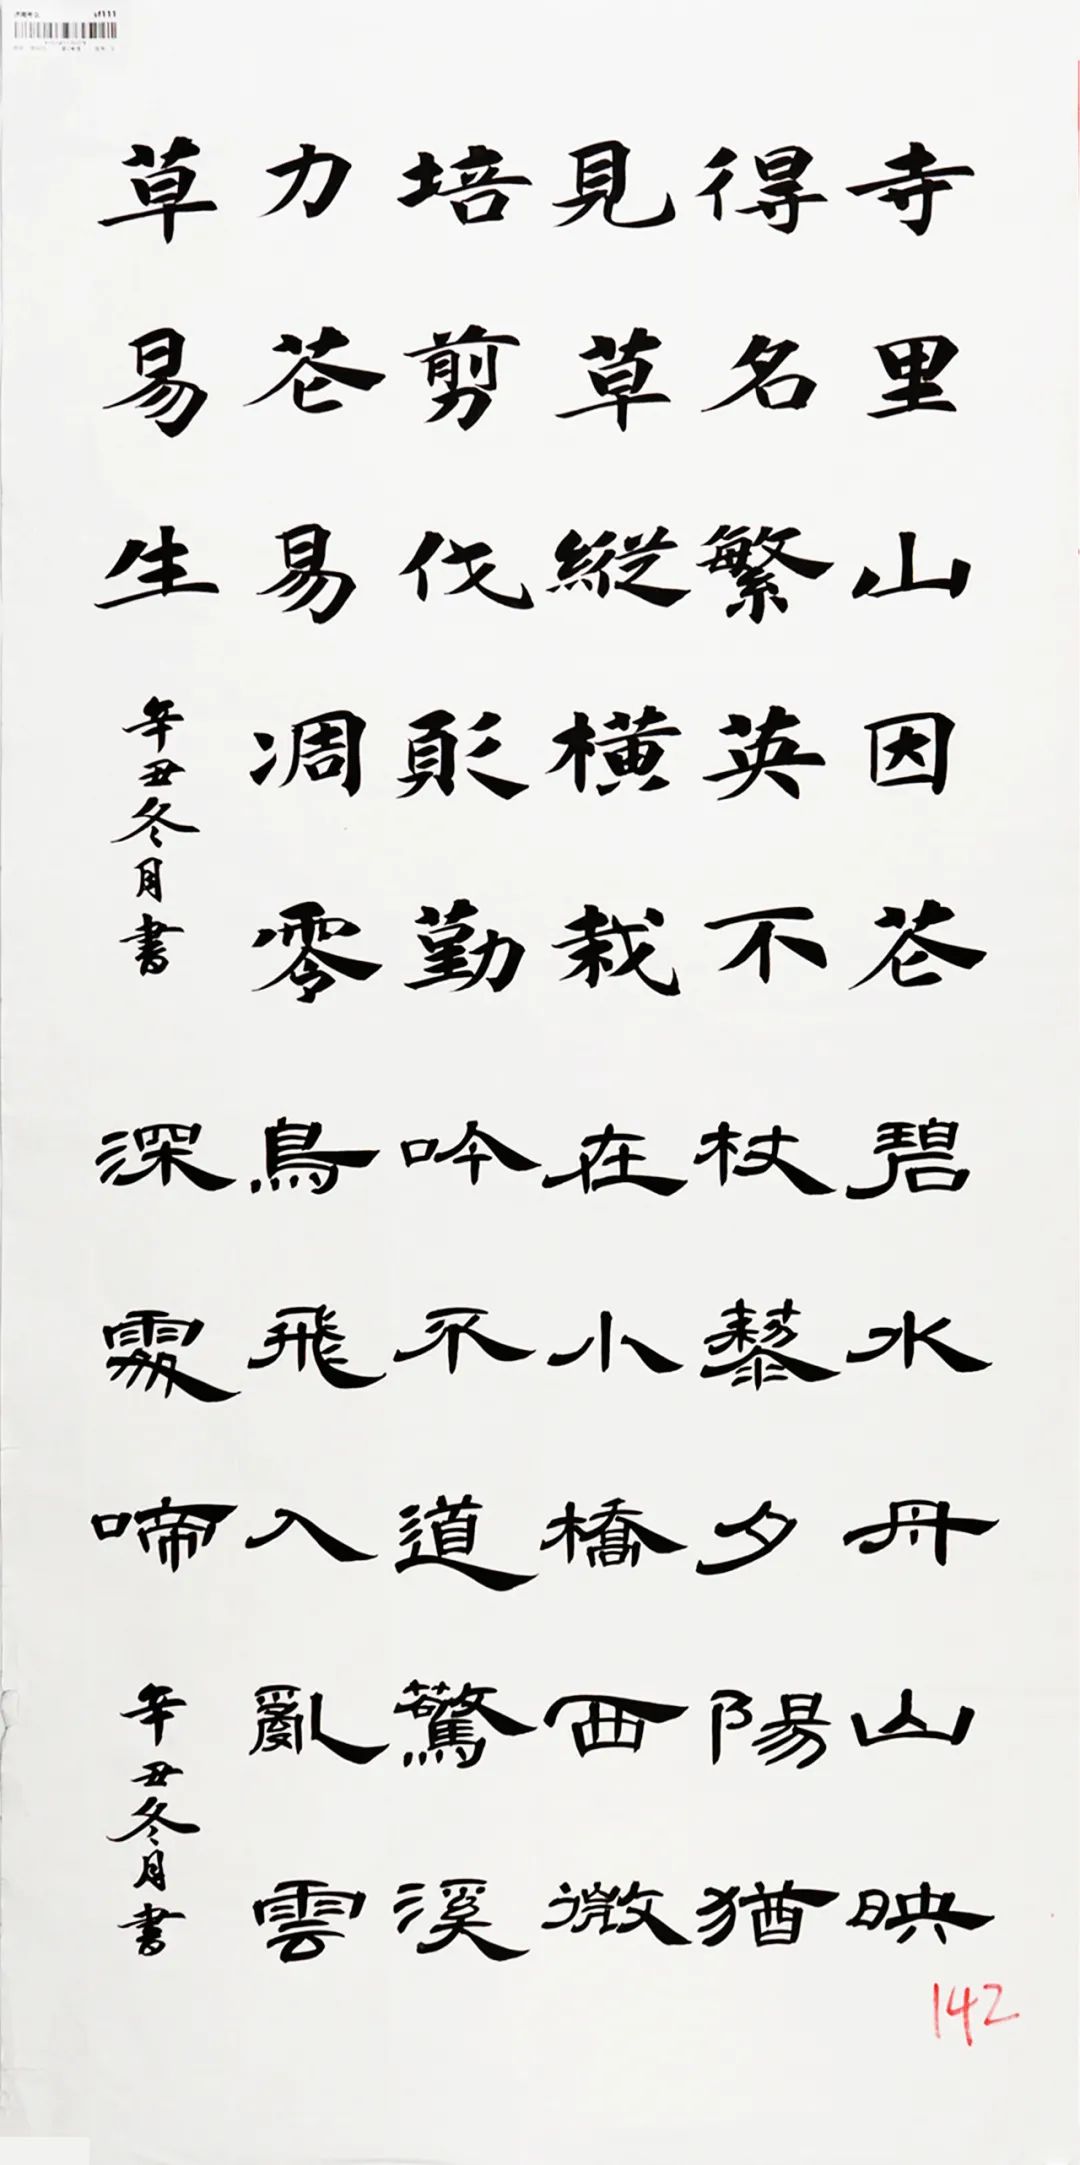 寺里山因苍
得名繁英不
見草縱橫栽
培剪伐須勤
力苍易凋零
草易生
辛丑冬月書
碧水丹山映
杖藜夕陽猶
在小橋西微
吟不道驚溪
鳥飛入亂雲
深處啼
辛丑冬月書
142